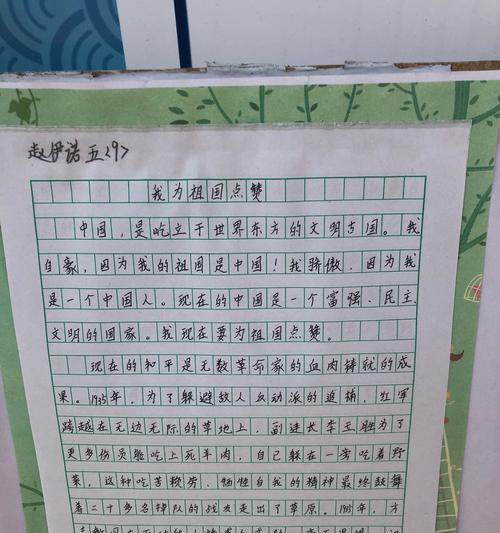 赵伊诺 五<9>
我为祖国点赞
中国，是屹立于世界东方的文明古国。我
自豪，因为我的祖国是中国！我骄傲，因为我
是一个中国人。现在的中国是一个富强、民主、
文明的国家。我现在要为祖国点赞。
现在的和平是无数革命家的血肉铸就的成
果。1935年，为了躲避敌人反动派的追捕，红军
跨越在无边无际的草地上，副连长李玉胜为了
更多伤员能吃上死羊肉，自己躲在一旁吃着野
菜，这种吃苦耐劳、牺牲自我的精神最终鼓舞
着二十多名掉队的战友走出了草原。1935年，方